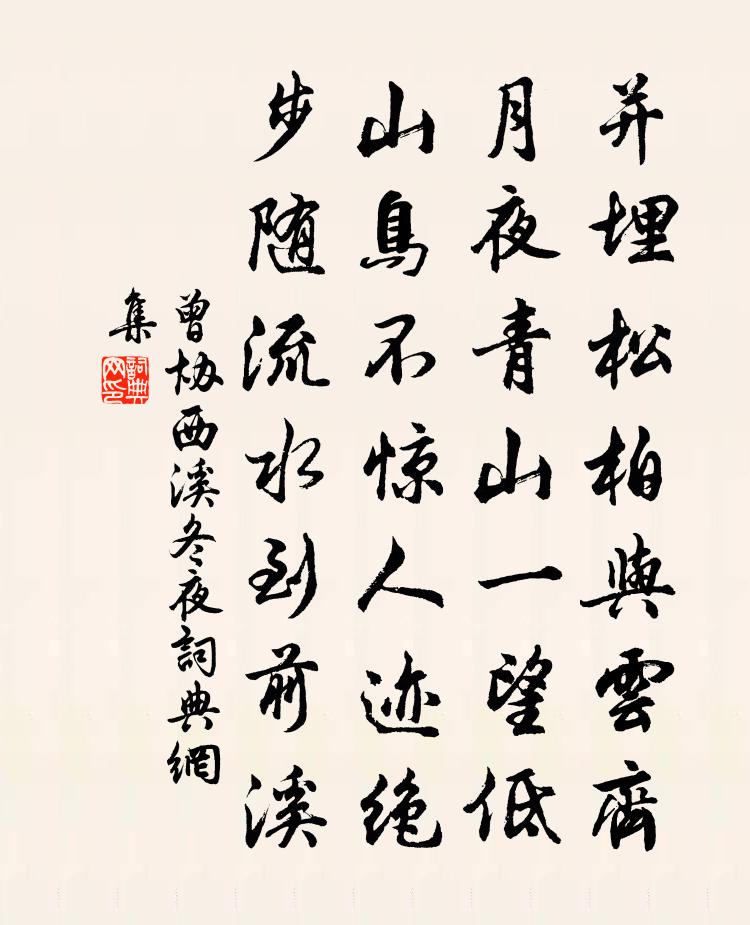 并埋松柏與雲齊
月夜青山一望低
山鳥不惊人迹绝
步随流水到前溪
曾协西溪冬夜詞典網
集
詞典网印